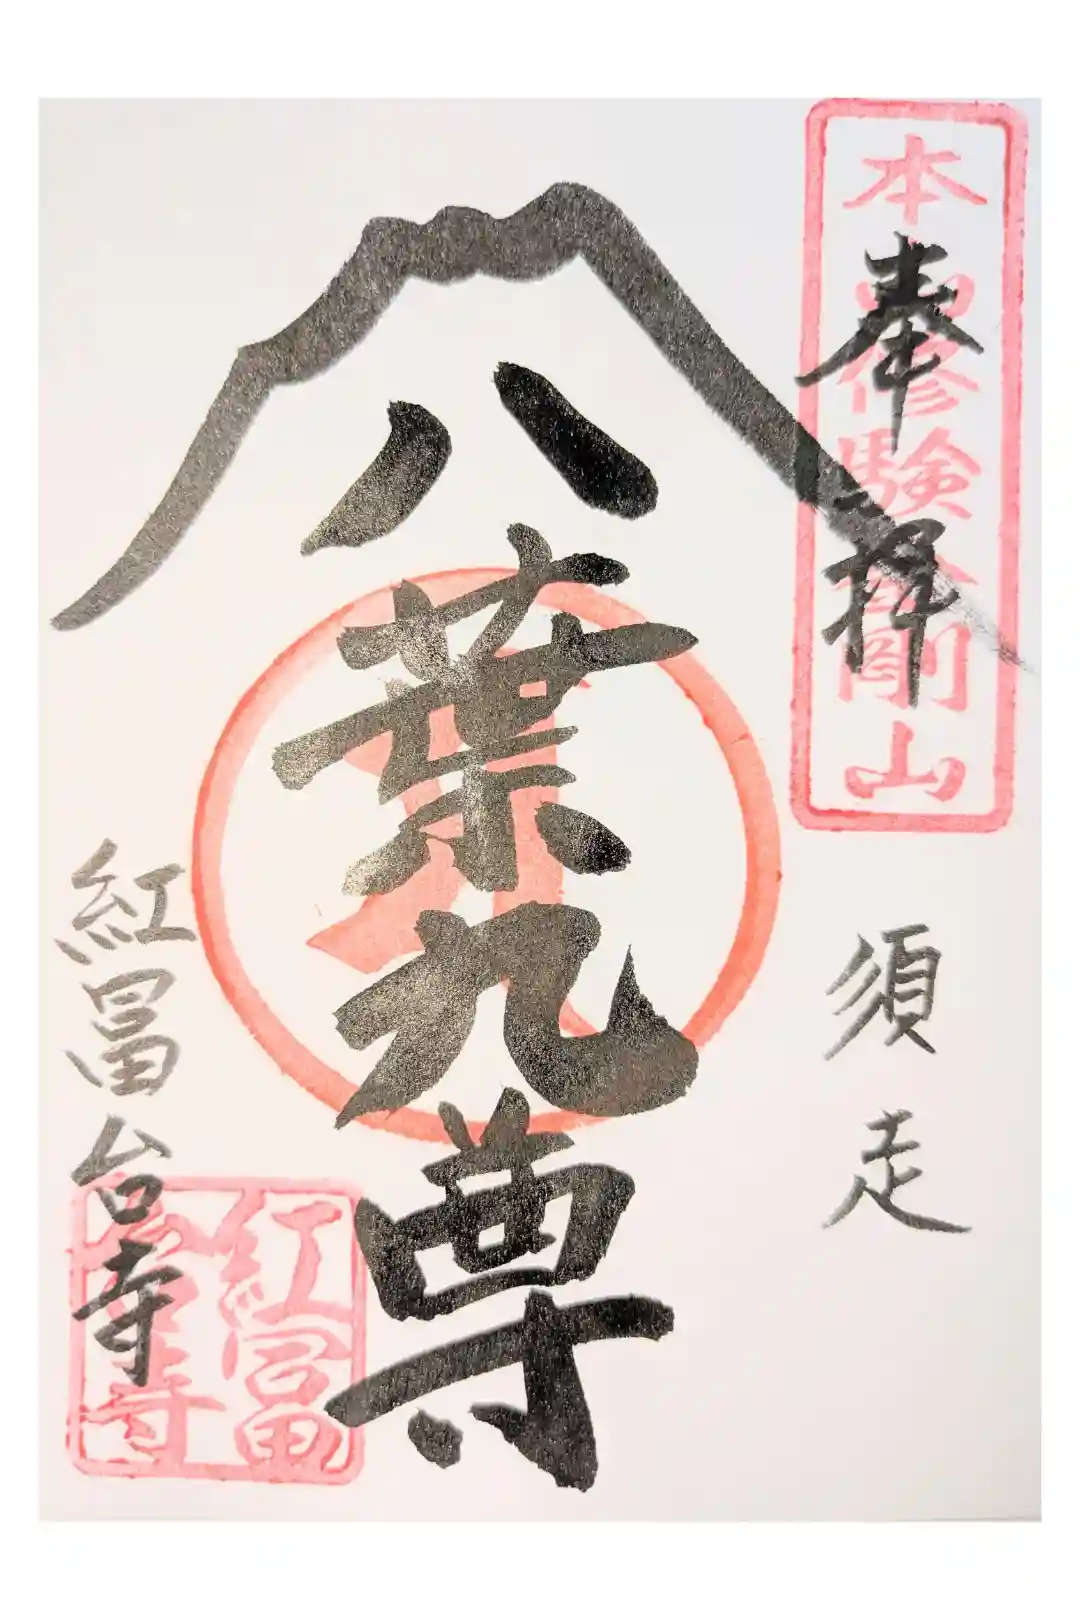 本山修験金剛山
奉拝
須走
八葉九尊
紅冨台寺
紅富
台寺